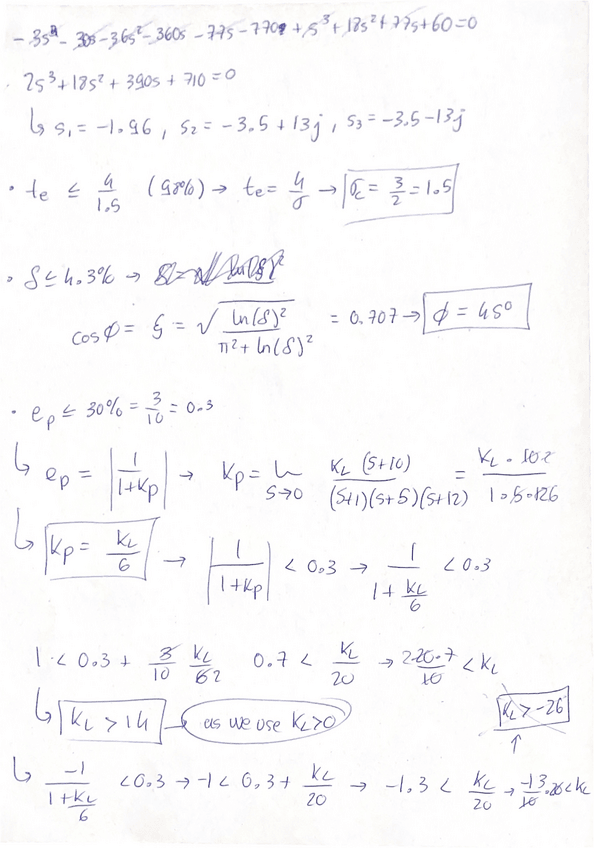 - 3s³ - 30s - 36s² - 360s - 77s - 770 + s³ + 18s² + 77s + 60 = 0
· 2s³ + 18s² + 390s + 710 = 0
↳ s₁ = -1.96 , s₂ = -3.5 + 13j , s₃ = -3.5 - 13j
• te ≤ 4/1.5 (98%) → te = 4/σ → σ = 3/2 = 1.5
• δ ≤ 4.3% →
cos ϕ = ξ = √(ln(δ)² / (π² + ln(δ)²)) = 0.707 → ϕ = 45°
• ep ≤ 30% = 3/10 = 0.3
↳ ep = |1/(1+Kp)| → Kp = lim s→0 KL (s+10)/((s+1)(s+5)(s+12)) = KL · 10 2/(1 · 5 · 12 6)
↳ Kp = KL/6 → |1/(1+Kp)| < 0.3 → 1/(1 + KL/6) < 0.3
1 < 0.3 + 3/10 KL/6 2 0.7 < KL/20 → 2 20·7/10 < KL
↳ KL > 14 → as we use KL > 0 KL > -26
↑
↳ -1/(1 + KL/6) < 0.3 → -1 < 0.3 + KL/20 → -1.3 < KL/20 → -13/10 · 20 < KL